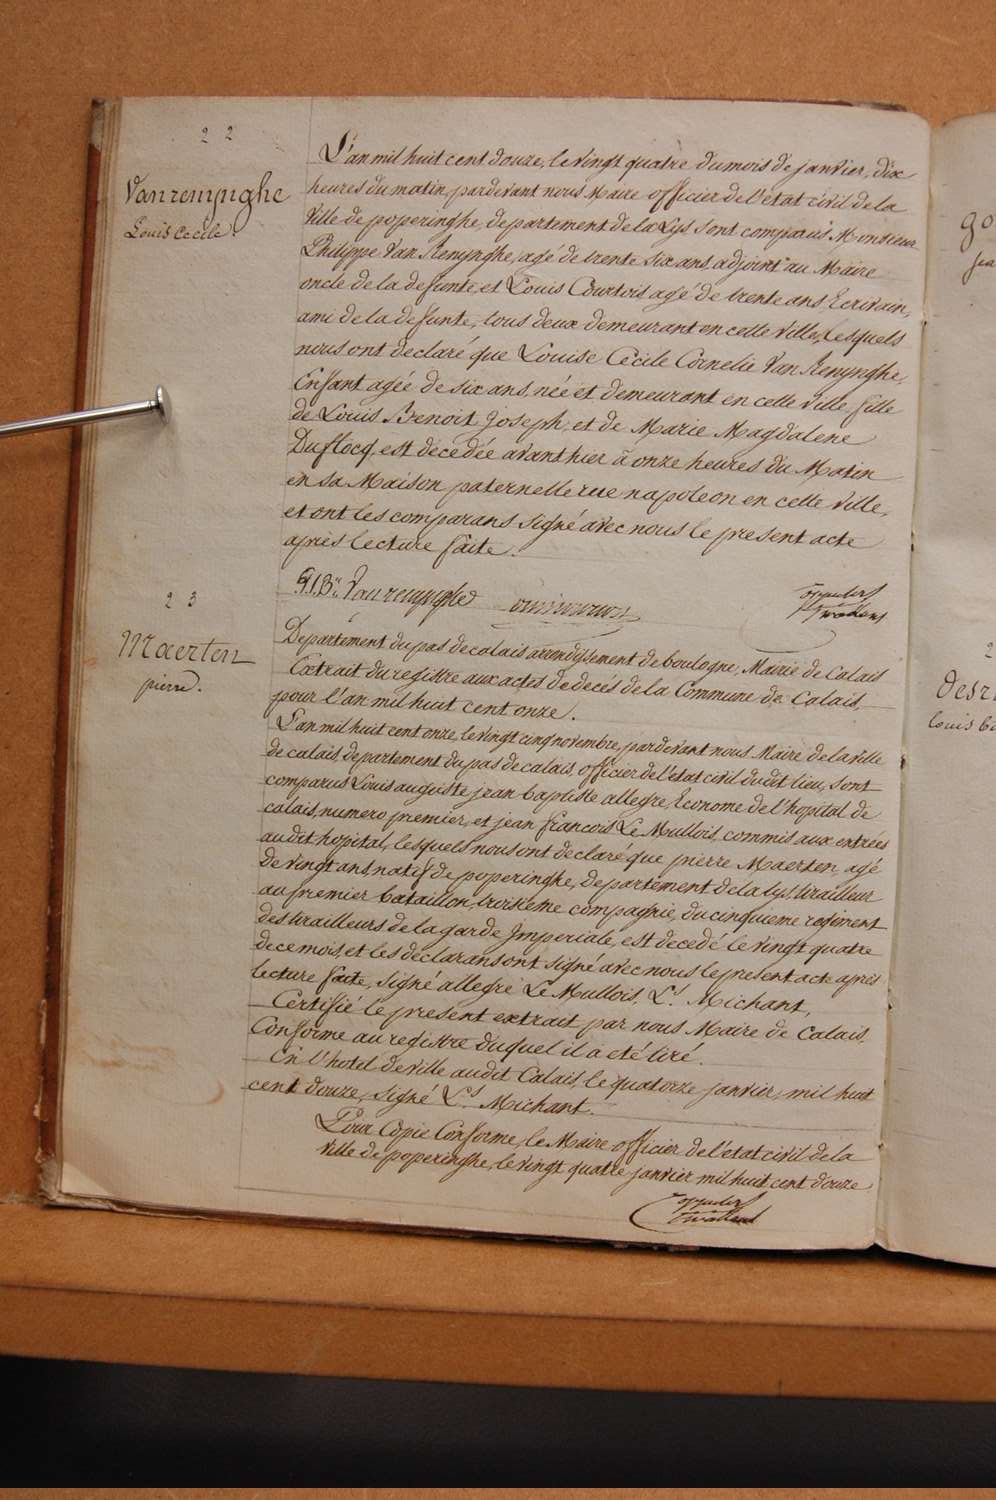 22
Vanrenynghe
Louis Cecile.
L'an mil huit cent douze, le vingt quatre du mois de janvier, dix
heures du matin, pardevant nous Maire officier de l'état civil de la
Ville de poperinghe, departement de la Lys sont comparus Monsieur
Philippe Van Renynghe, agé de trente six ans, adjoint au Maire
oncle de la defunte, et Louis Courtois agé de trente ans, Ecrivain,
ami de la defunte, tous deux demeurant en cette ville, lesquels
nous ont declaré que Louise Cecile Cornelie Van Renynghe,
Enfant agée de six ans, née et demeurant en cette ville, fille
de Louis Benoit Joseph, et de Marie Magdalene
Duflocq, est décédée avant hier à onze heures du Matin
en sa Maison paternelle rue napoleon en cette ville,
et ont les comparans signé avec nous le present acte
après lecture faite.
Vanrenynghe
23
Maerten
pierre.
Departement du pas de calais arrondissement de boulogne, Mairie de Calais
Extrait du registre aux actes de decés de la Commune de Calais
pour l'an mil huit cent onze.
L'an mil huit cent onze, le vingt cinq novembre, pardevant nous Maire de la ville
de calais, departement du pas de calais, officier de l'état civil du dit lieu, sont
comparus Louis auguste jean baptiste allegre, Econome de l'hopital de
calais, numero premier, et jean francois Le Mullois, commis aux entrées
au dit hopital, lesquels nous ont declaré que pierre Maerten, agé
de vingt ans, natif de poperinghe, departement de la Lys, tirailleur
au premier bataillon, troisieme compagnie, du cinquieme regiment
des tirailleurs de la garde Imperiale, est decedé le vingt quatre
de ce mois, et les declarans ont signé avec nous le present acte après
lecture faite, signé allegre Le Mullois, Ls. Michant,
Certifié le present extrait par nous Maire de Calais,
Conforme au registre duquel il a été tiré.
En l'hotel de ville au dit Calais, le quatorze janvier, mil huit
cent douze, signé Ls. Michant.
Pour Copie Conforme, le Maire officier de l'état civil de la
ville de poperinghe, le vingt quatre janvier mil huit cent douze